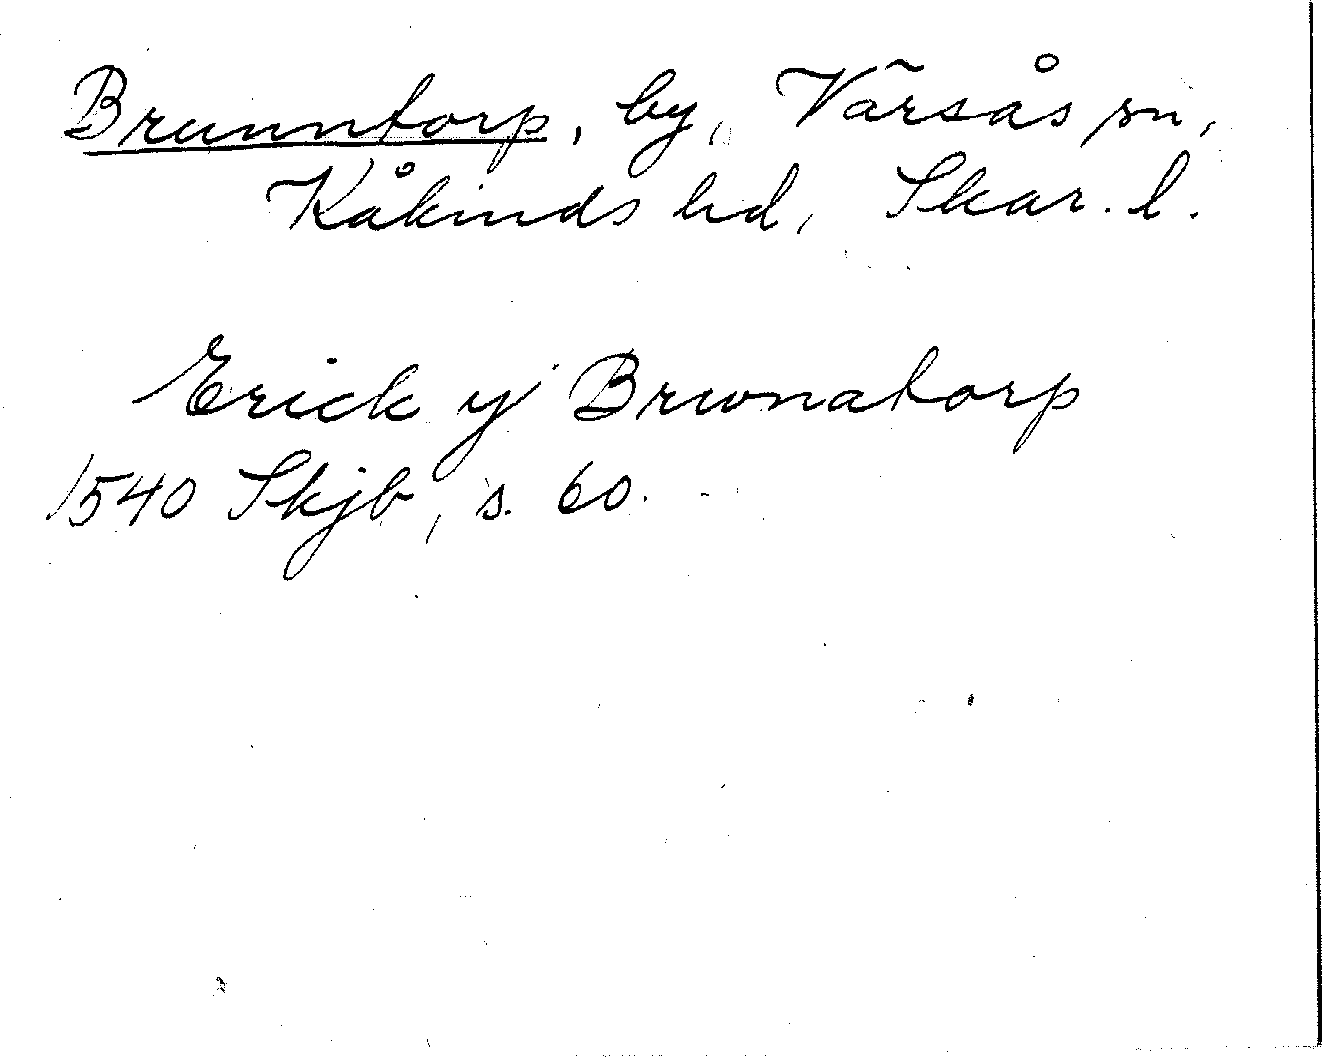 Brunntorp, by, Värsås sn,
Kåkinds hd, Skar. l.
Erick y Brwnatorp
1540 Skjb, s. 60.